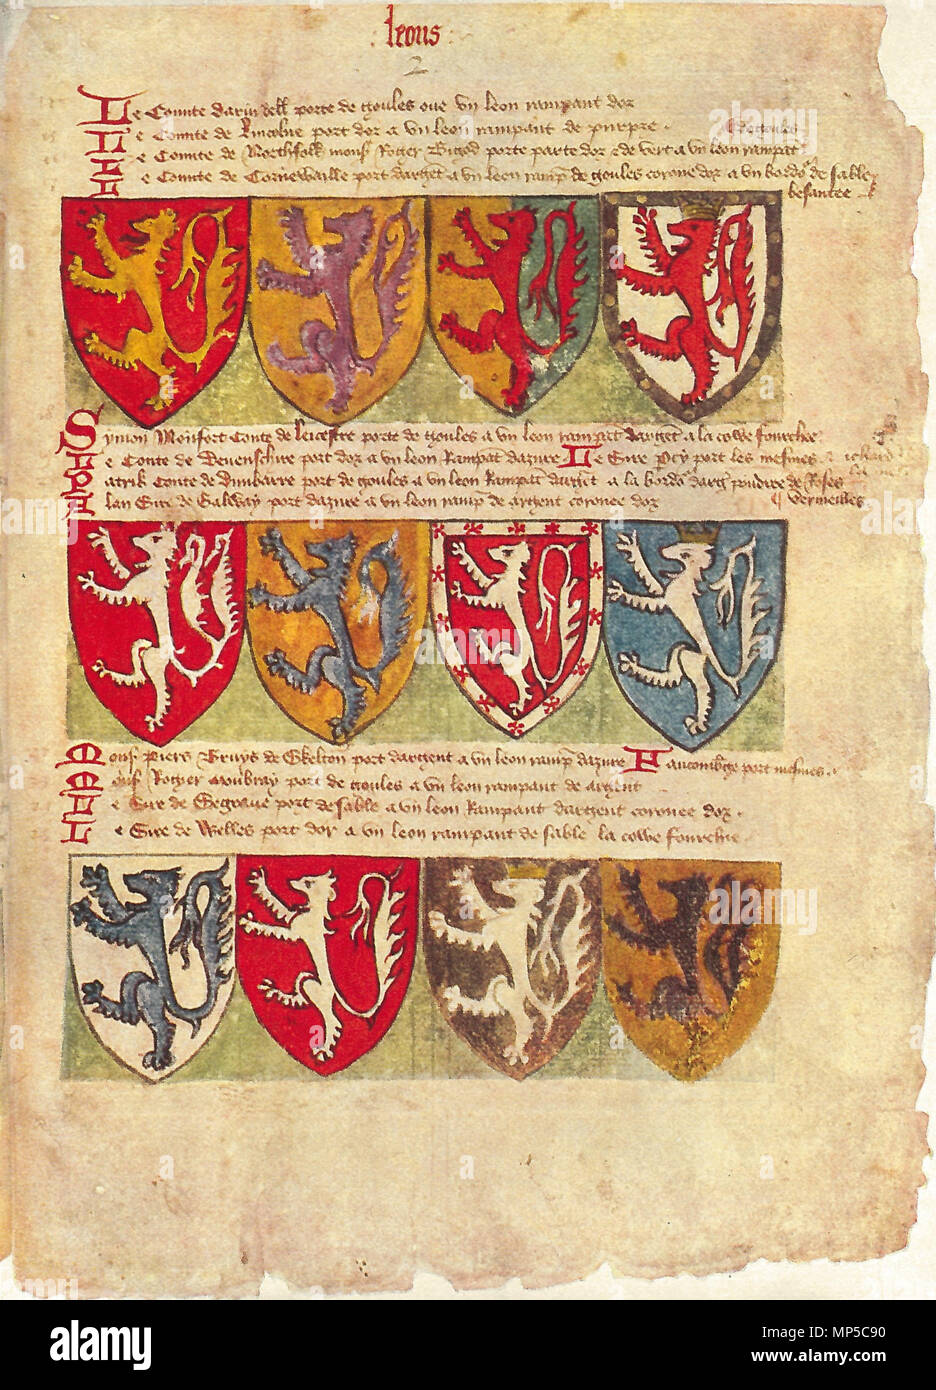 leons
2
Le Comte darundell porte de goules ove un leon rampant dor
Le Comte de Lincolne port dor a un leon rampant de purpre .
de goules
Le Comte de Northfolk mons Roger Bigod porte parte dor & de vert a un leon rampāt
Le Comte de Cornewaille port dargēt a un leon ramp de goules corone dor a un bordō de sable
besantee
Symon Monfort Conte de Leicestre porte de goules a un leon rampāt dargēt a la cowe fourchee
Le Conte de Devenschire port dor a un leon Rampāt dazure Le Sire Pcy port les mesmes
Patrik Conte de Dunbarre port de goules a un leon Rampāt darget a la bordō darg poudre de Roses
vermeilles
Alan Sire de Galway port dazure a un leon ramp de argent coronee dor
Mons Piers Bruys de Skelton port dargent a un leon ramp dazure Faucombge port mesmes .
Mons Roger Moubray port de goules a un leon rampant de argent
Le Sire de Segrave port de sable a un leon Rampant dargent coronee dor .
Le Sire de Welles port dor a un leon rampant de sable la cowe fourche
alamy
Image ID: MP5C90
www.alamy.com